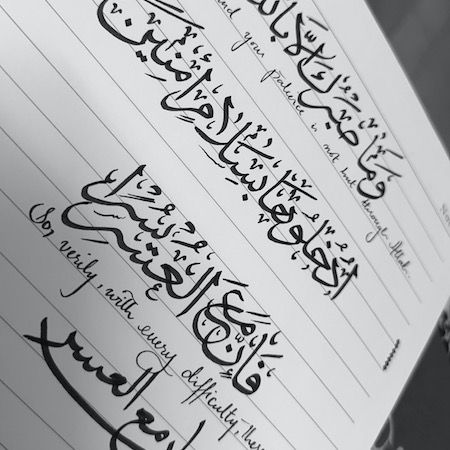 وَمَا صَبْرُكَ إِلَّا بِاللَّ
and your patience is not but through Allah.
اُدْخُلُوهَا بِسَلَامٍ آمِنِينَ
فَإِنَّ مَعَ الْعُسْرِ يُسْرًا
So, verily, with every difficulty, ther
مع العسر